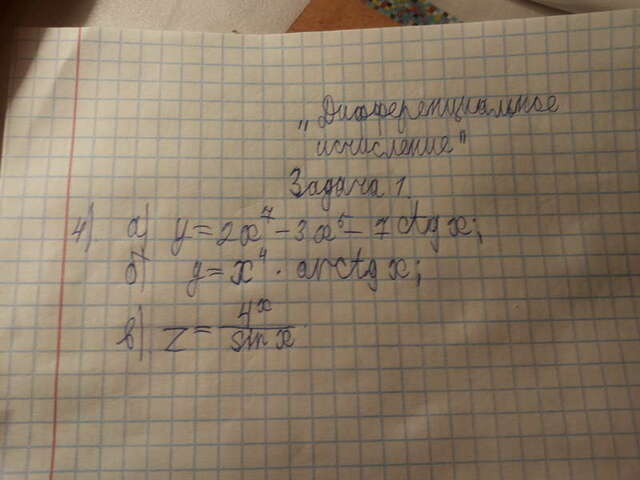 „Дифференциальное
исчисление"
Задача 1.
4) а) y = 2x⁷ - 3x⁵ - 7 ctg x;
б) y = x⁴ · arctg x;
в) z = 4ˣ / sin x